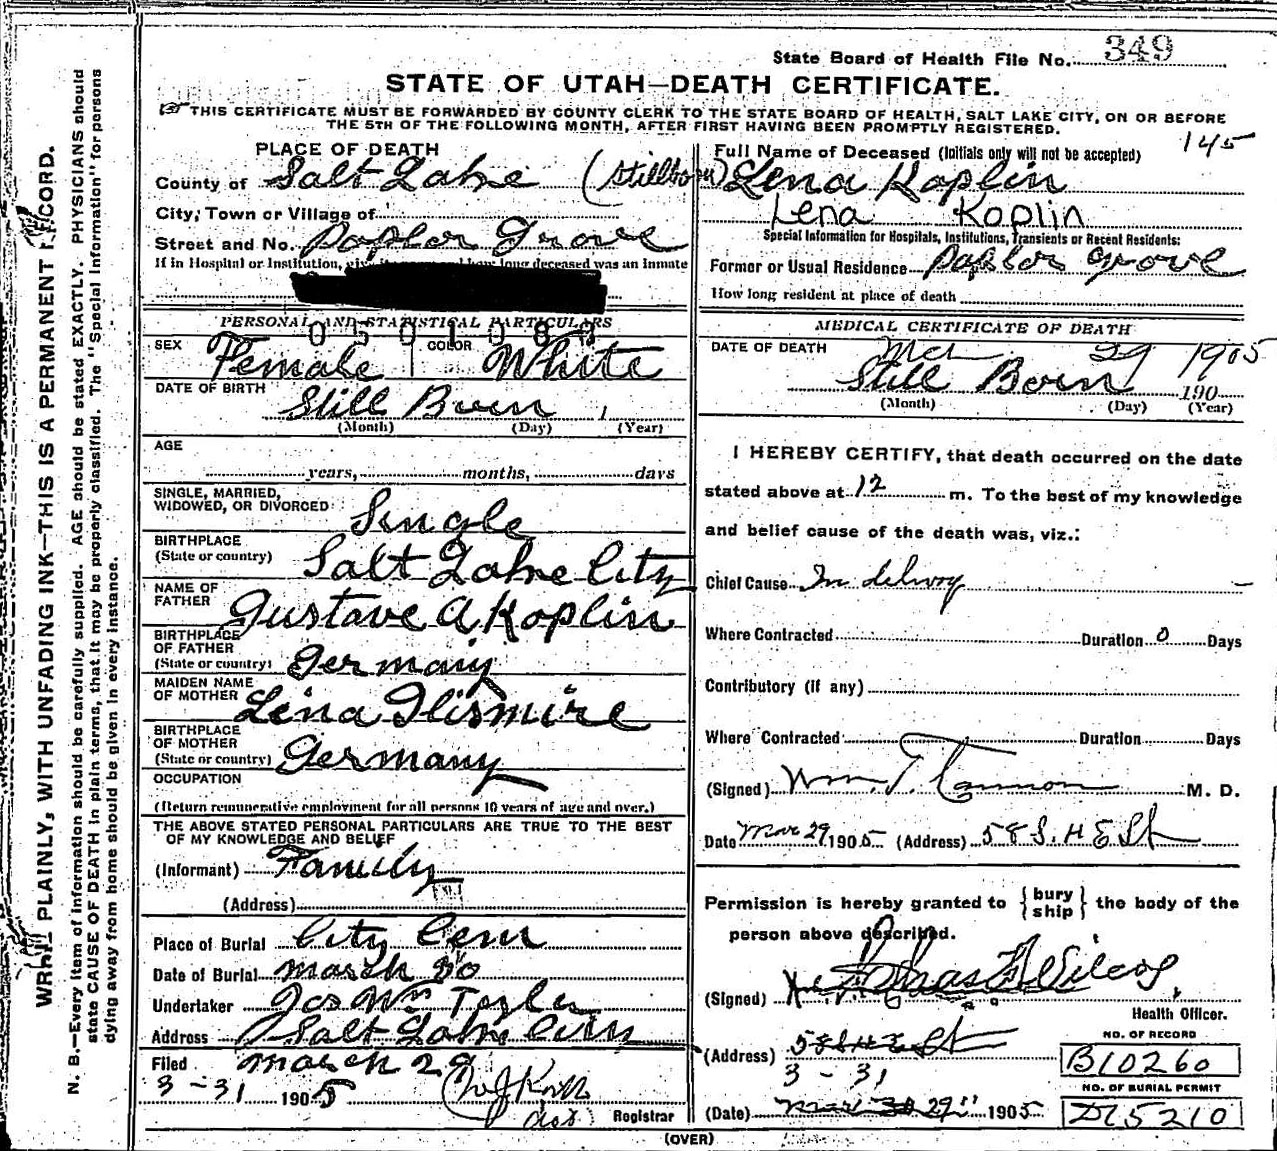 State Board of Health File No. 349
STATE OF UTAH—DEATH CERTIFICATE.
THIS CERTIFICATE MUST BE FORWARDED BY COUNTY CLERK TO THE STATE BOARD OF HEALTH, SALT LAKE CITY, ON OR BEFORE
THE 5TH OF THE FOLLOWING MONTH, AFTER FIRST HAVING BEEN PROMPTLY REGISTERED.
145
WRITE PLAINLY, WITH UNFADING INK—THIS IS A PERMANENT RECORD.
N. B.—Every item of information should be carefully supplied. AGE should be stated EXACTLY. PHYSICIANS should
state CAUSE OF DEATH in plain terms, that it may be properly classified. The "Special Information" for persons
dying away from home should be given in every instance.
PLACE OF DEATH
County of Salt Lake (Stillborn)
City, Town or Village of
Street and No. Poplor Grove
If in Hospital or Institution, deceased was an inmate
PERSONAL AND STATISTICAL PARTICULARS
SEX Female COLOR White
DATE OF BIRTH Still Born
(Month) (Day) (Year)
AGE
years, months, days
SINGLE, MARRIED,
WIDOWED, OR DIVORCED Single
BIRTHPLACE
(State or country) Salt Lake City
NAME OF
FATHER Gustave A. Koplin
BIRTHPLACE
OF FATHER
(State or country) Germany
MAIDEN NAME
OF MOTHER Lena
BIRTHPLACE
OF MOTHER
(State or country) Germany
OCCUPATION
(Return remunerative employment for all persons 10 years of age and over.)
THE ABOVE STATED PERSONAL PARTICULARS ARE TRUE TO THE BEST
OF MY KNOWLEDGE AND BELIEF
(Informant) Family
(Address)
Place of Burial City Cem
Date of Burial March 30
Undertaker Jos Wm Taylor
Address Salt Lake City
Filed March 29
3-31 1905
Registrar
Full Name of Deceased (Initials only will not be accepted)
Lena Koplin
Lena Koplin
Special Information for Hospitals, Institutions, Transients or Recent Residents:
Former or Usual Residence Poplor Grove
How long resident at place of death
MEDICAL CERTIFICATE OF DEATH
DATE OF DEATH Mch 29 1905
Still Born 190
(Month) (Day) (Year)
I HEREBY CERTIFY, that death occurred on the date
stated above at 12 m. To the best of my knowledge
and belief cause of the death was, viz.:
Chief Cause In delivery
Where Contracted Duration 0 Days
Contributory (if any)
Where Contracted Duration Days
(Signed) Wm. T. Cannon M. D.
Date Mar 29 1905 (Address) 58 S. H E St
Permission is hereby granted to {bury
ship} the body of the
person above described.
(Signed)
Health Officer.
(Address)
3 - 31
(Date) 29 1905
NO. OF RECORD
B10260
NO. OF BURIAL PERMIT
D15210
(OVER)